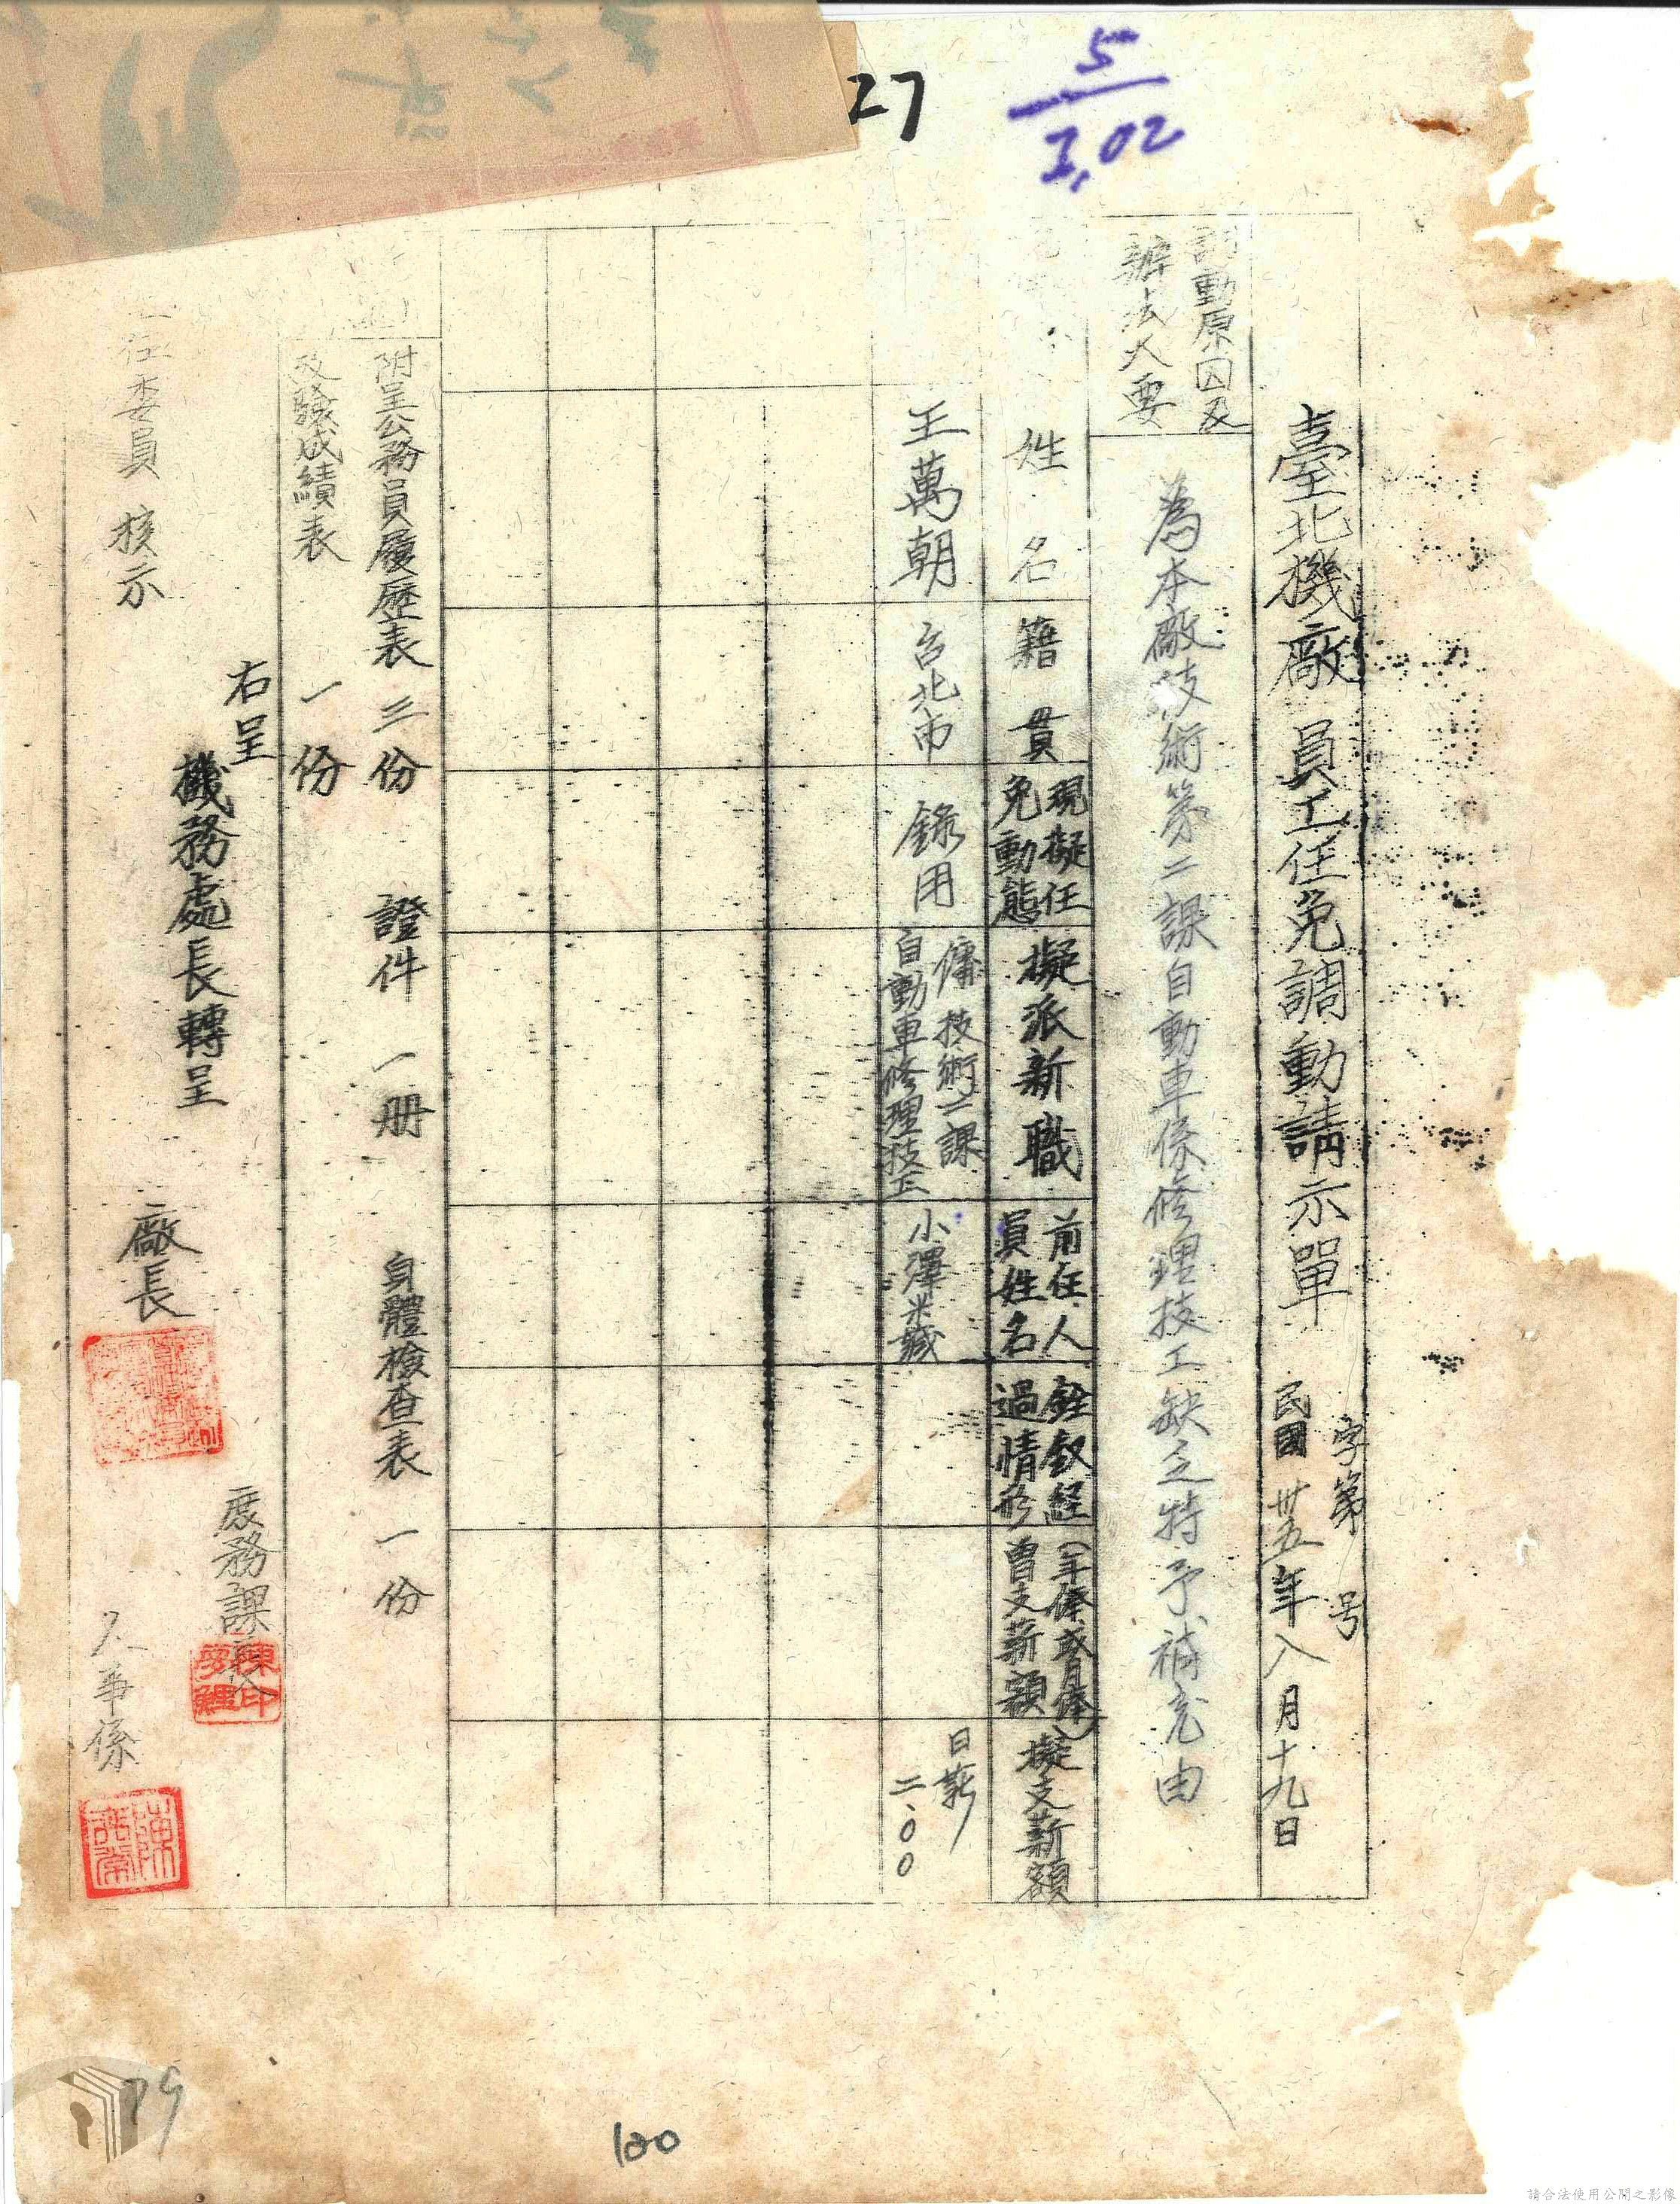 27
5
1,02
臺北機廠 員工任免調動請示單
字第 号
民國卅五年八月十九日
調動原因及
辦法大要
為本廠技術第二課自動車係修理技工缺乏特予補充由
姓名
籍貫
現擬任
免動態
擬派新職
前任人
員姓名
銓敘経
過情形
(年俸或月俸)
曾支薪額
擬支薪額
王萬朝
台北市
錄用
傭 技術二課
自動車修理技工
小澤米藏
日薪
二.00
附呈公務員履歷表 三份 證件 一册 身體檢查表 一份
成績表 一份
右呈
機務處長轉呈
任委員 核示
廠長
庶務課
人事係
79
100
請合法使用公開之影像